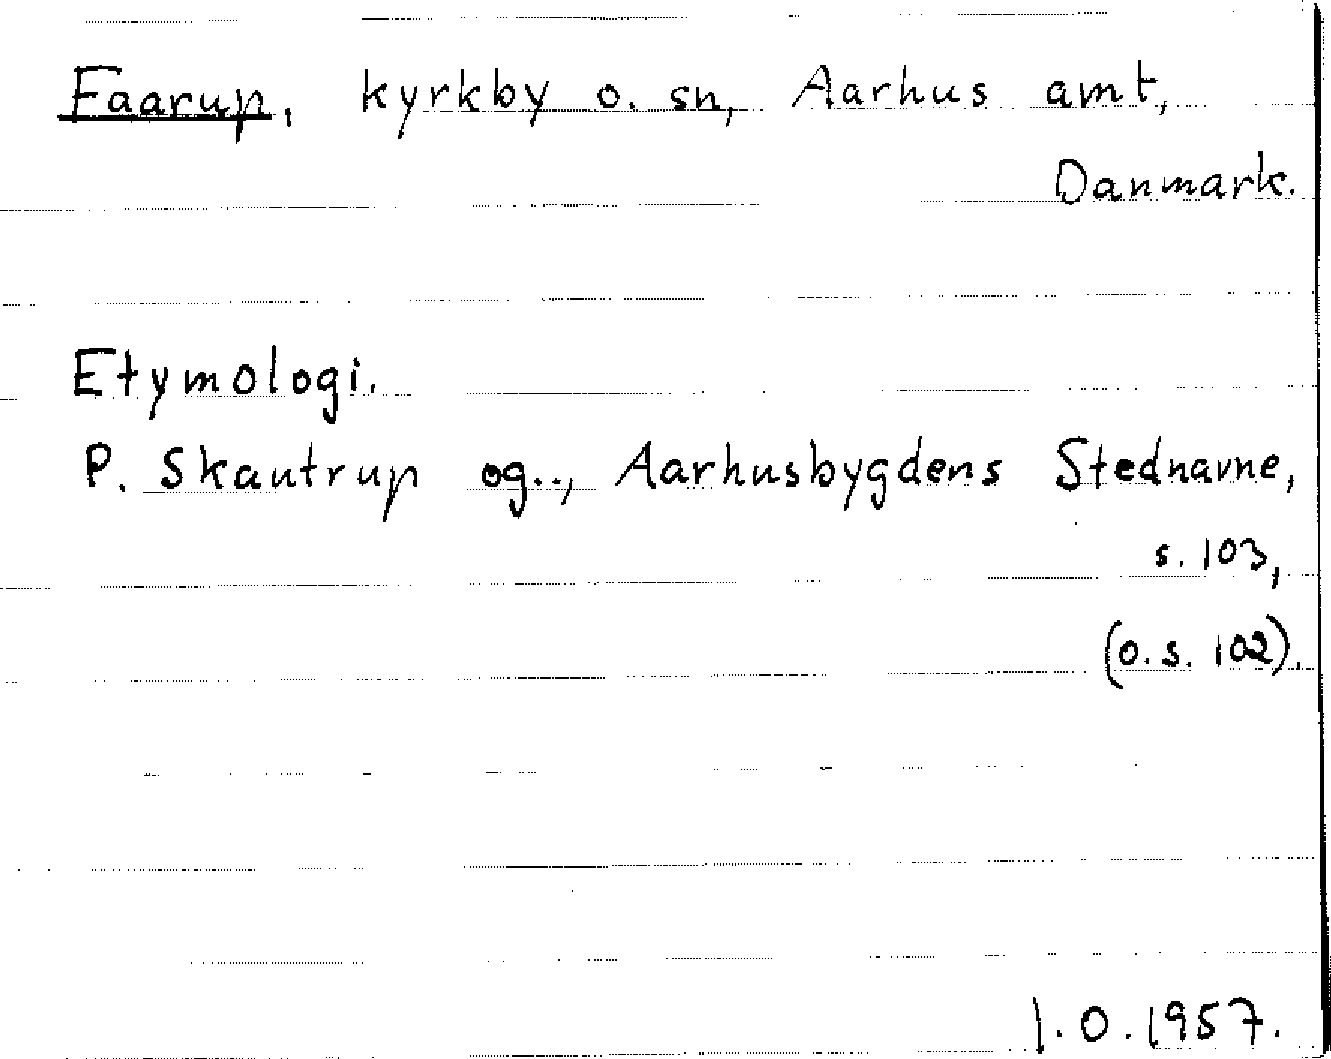 Faarup, kyrkby o. sn, Aarhus amt,
Danmark.
Etymologi.
P. Skautrup og.., Aarhusbygdens Stednavne,
s. 103,
(o. s. 102).
J.O.1957.